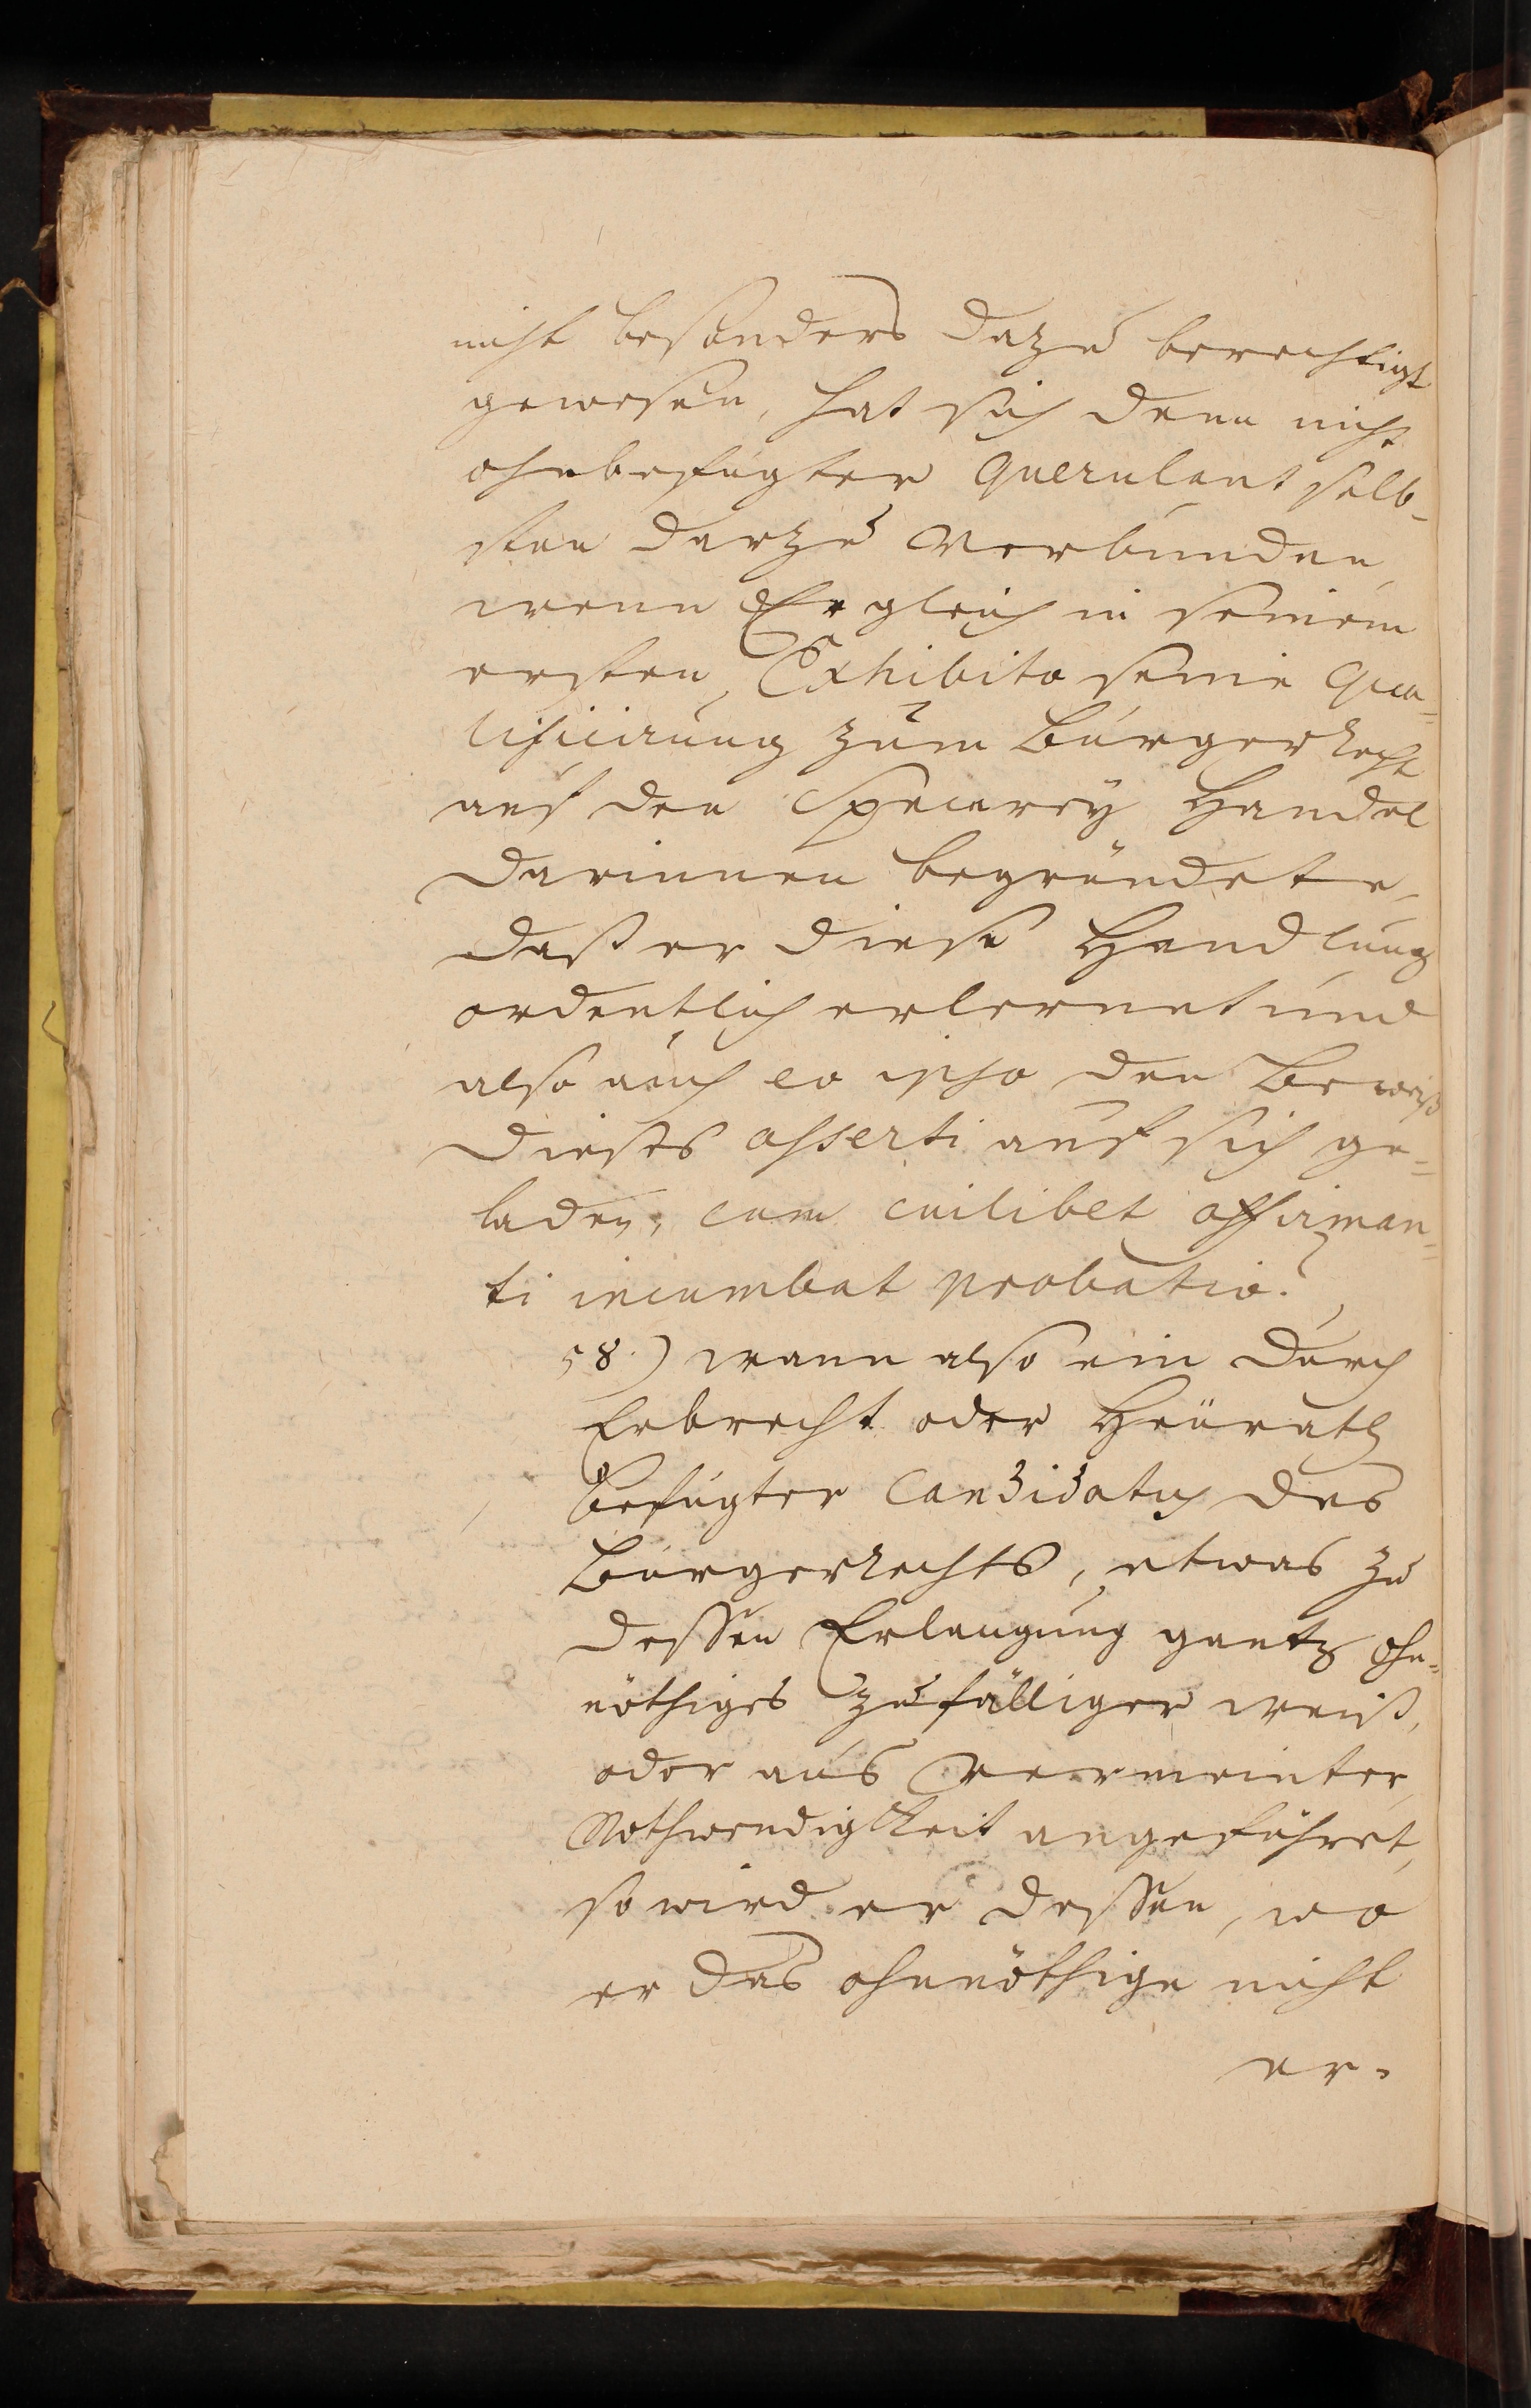 nicht besonders dazu berechtigt
gewesen, hat sich denn nicht
ohnbefugter Querulant selb-
sten darzu verbunden,
wenn Er gleich in seinem
ersten Exhibito seine Qua=
lificirung zum Bürgerrecht
auf den Specerey Handel
darinnen begründete,
daß er diese Handlung
ordentlich erlernet und
also auch eo ipso den Beweiß
dieses asserti auf sich ge=
laden, cum cuilibet affirman=
ti incumbat probatio.
58.) wann also ein durch
Erbrecht oder Heürath
befugter Candidatus des
Bürgerrechts, etwas zu
dessen Erlangung gantz ohn=
nöthiges zufälliger weiß,
oder aus vermeinter
Nothwendigkeit angeführet,
so wird er dessen, wo
er das ohnnöthige nicht
er-